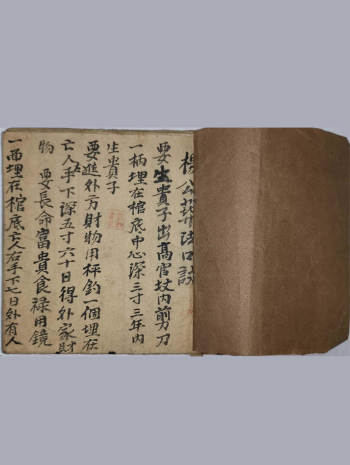 楊公葬法口訣
要生貴子出髙官坟内剪刀
一柄埋在棺底中心深三寸三年内
生貴子
要進外方財物用秤鈎一個埋在
亡人手下深五寸六十日得外家財
物 要長命富貴食禄用鏡
一面埋在棺底亡人右手下七日外有人